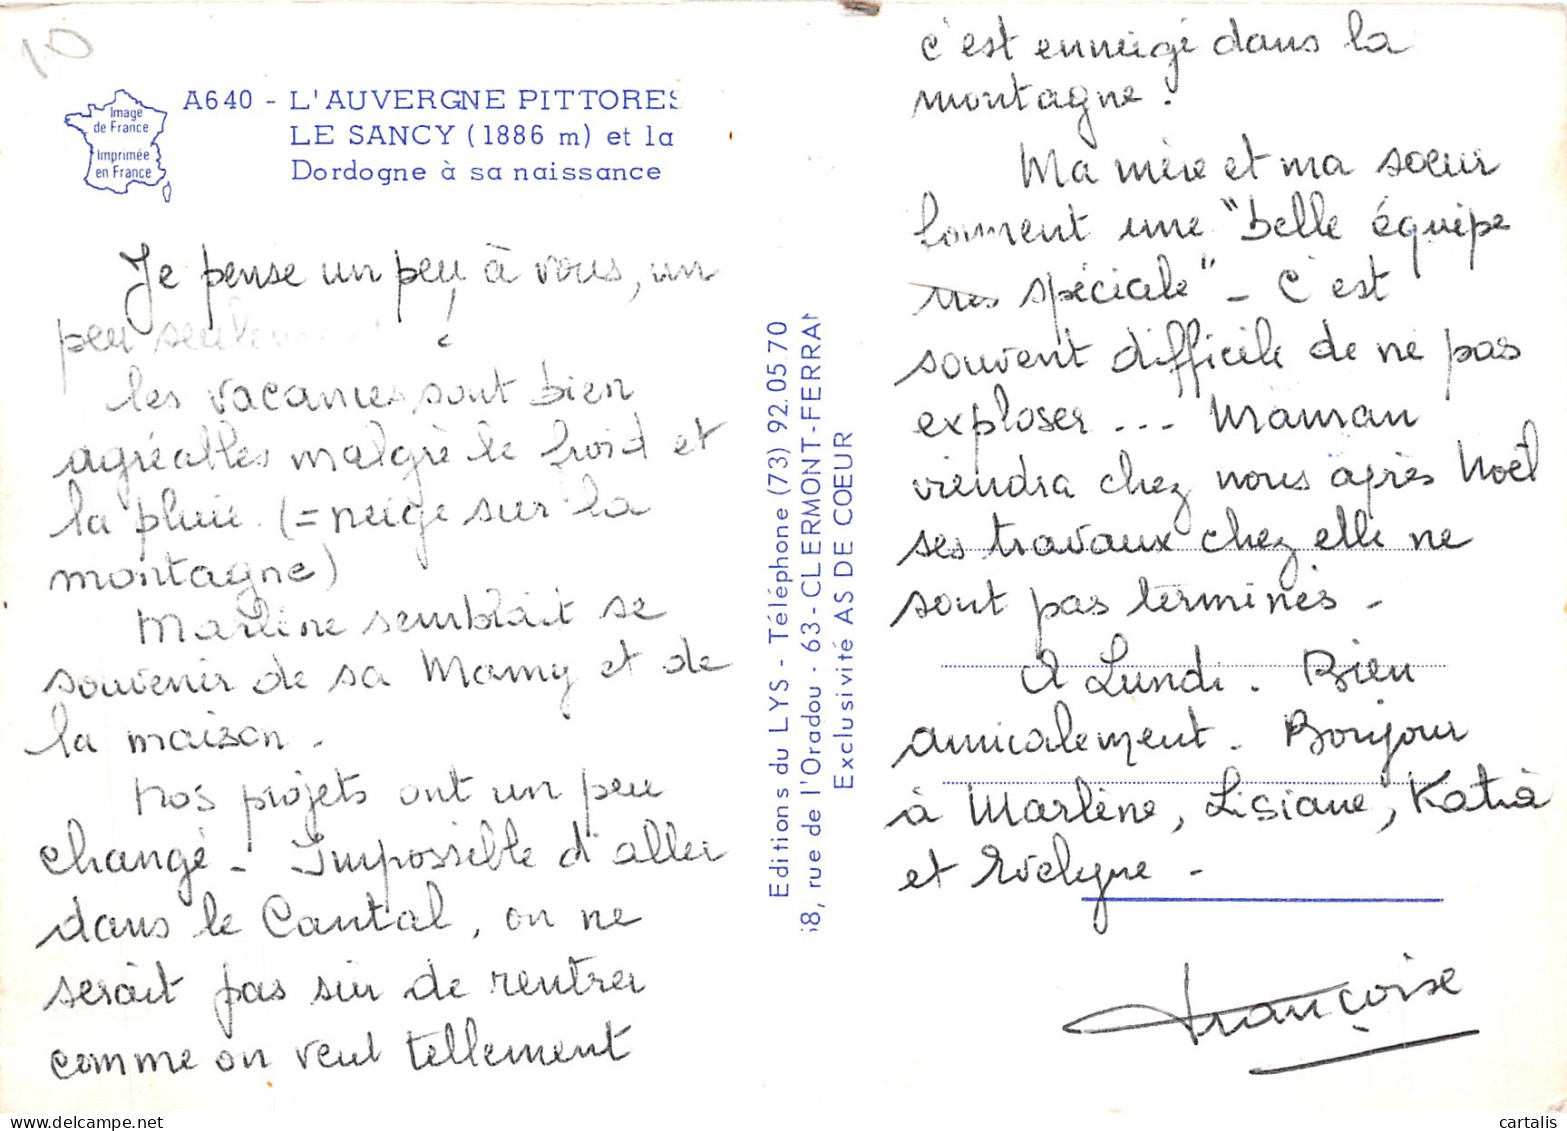 10
Image
de France
Imprimée
en France
A640 - L'AUVERGNE PITTORES
LE SANCY (1886 m) et la
Dordogne à sa naissance
Je pense un peu à vous, un
peu seulement !
les vacances sont bien
agréables malgré le froid et
la pluie (= neige sur la
montagne)
Marlène semblait se
souvenir de sa Mamy et de
la maison.
Nos projets ont un peu
changé - Impossible d'aller
dans le Cantal, on ne
serait pas sûr de rentrer
comme on veut tellement
Editions du LYS - Téléphone (73) 92.05.70
68, rue de l'Oradou - 63 - CLERMONT-FERRAN
Exclusivité AS DE COEUR
c'est enneigé dans la
montagne.
Ma mère et ma soeur
forment une "belle équipe
très spéciale" - C'est
souvent difficile de ne pas
exploser ... Maman
viendra chez nous après Noël
ses travaux chez elle ne
sont pas terminés -
A Lundi. Bien
amicalement. Bonjour
à Marlène, Lisiane, Katia
et Evelyne -
Françoise
cartalis